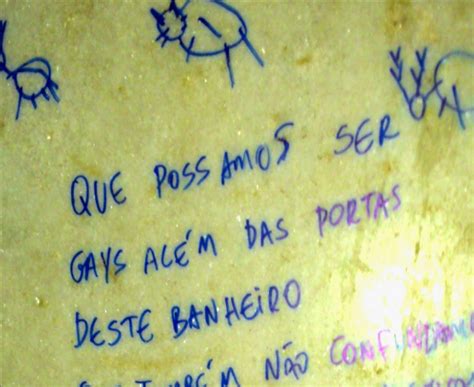 QUE POSSAMOS SER
GAYS ALÉM DAS PORTAS
DESTE BANHEIRO
E TAMBÉM NÃO CONFUNDAMOS